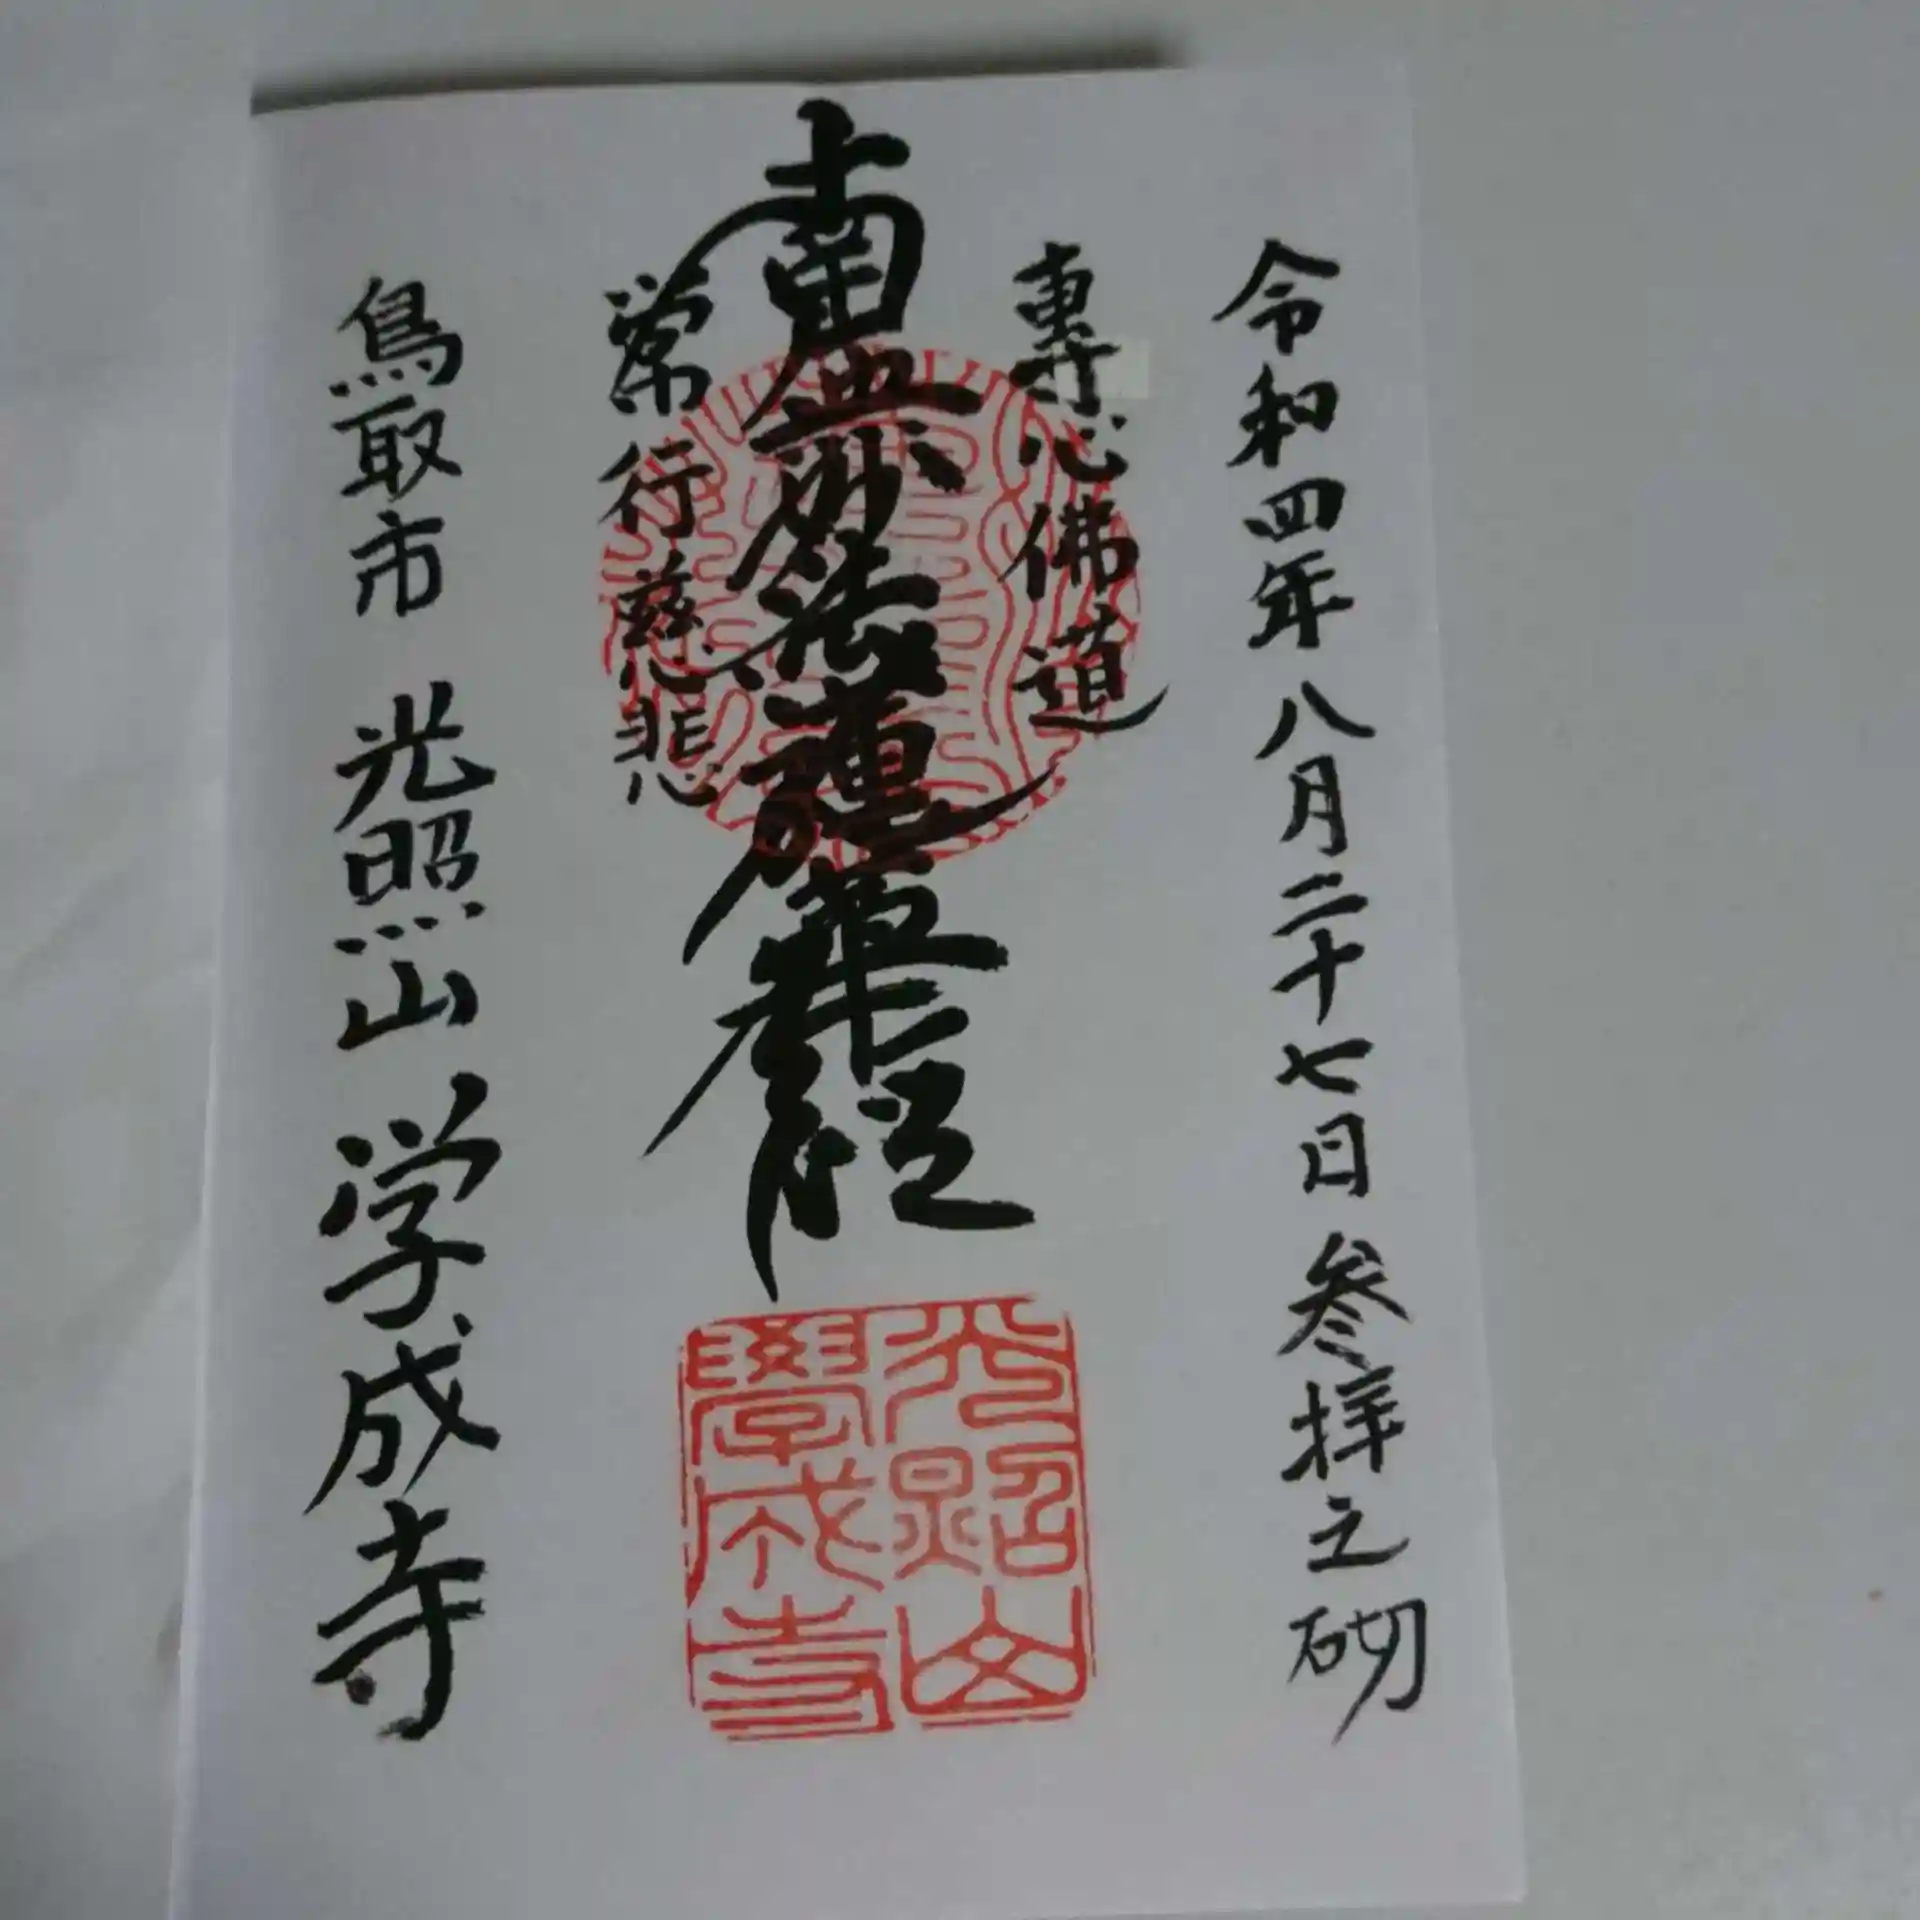 令和四年八月二十七日 参拝之砌
專心佛道
南無妙法蓮華経
常行慈悲
鳥取市 光照山 学成寺
光照山
學成寺